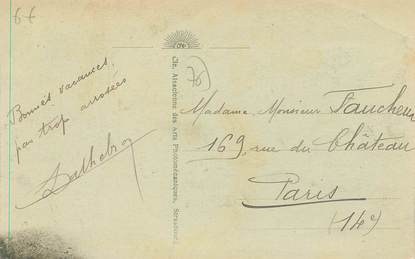 66
Bonnes vacances,
pas trop arrosées
Cie. Alsacienne des arts Photomécaniques, Strasbourg
Madame, Monsieur Faucheux
169, rue du Château
Paris
(14e)